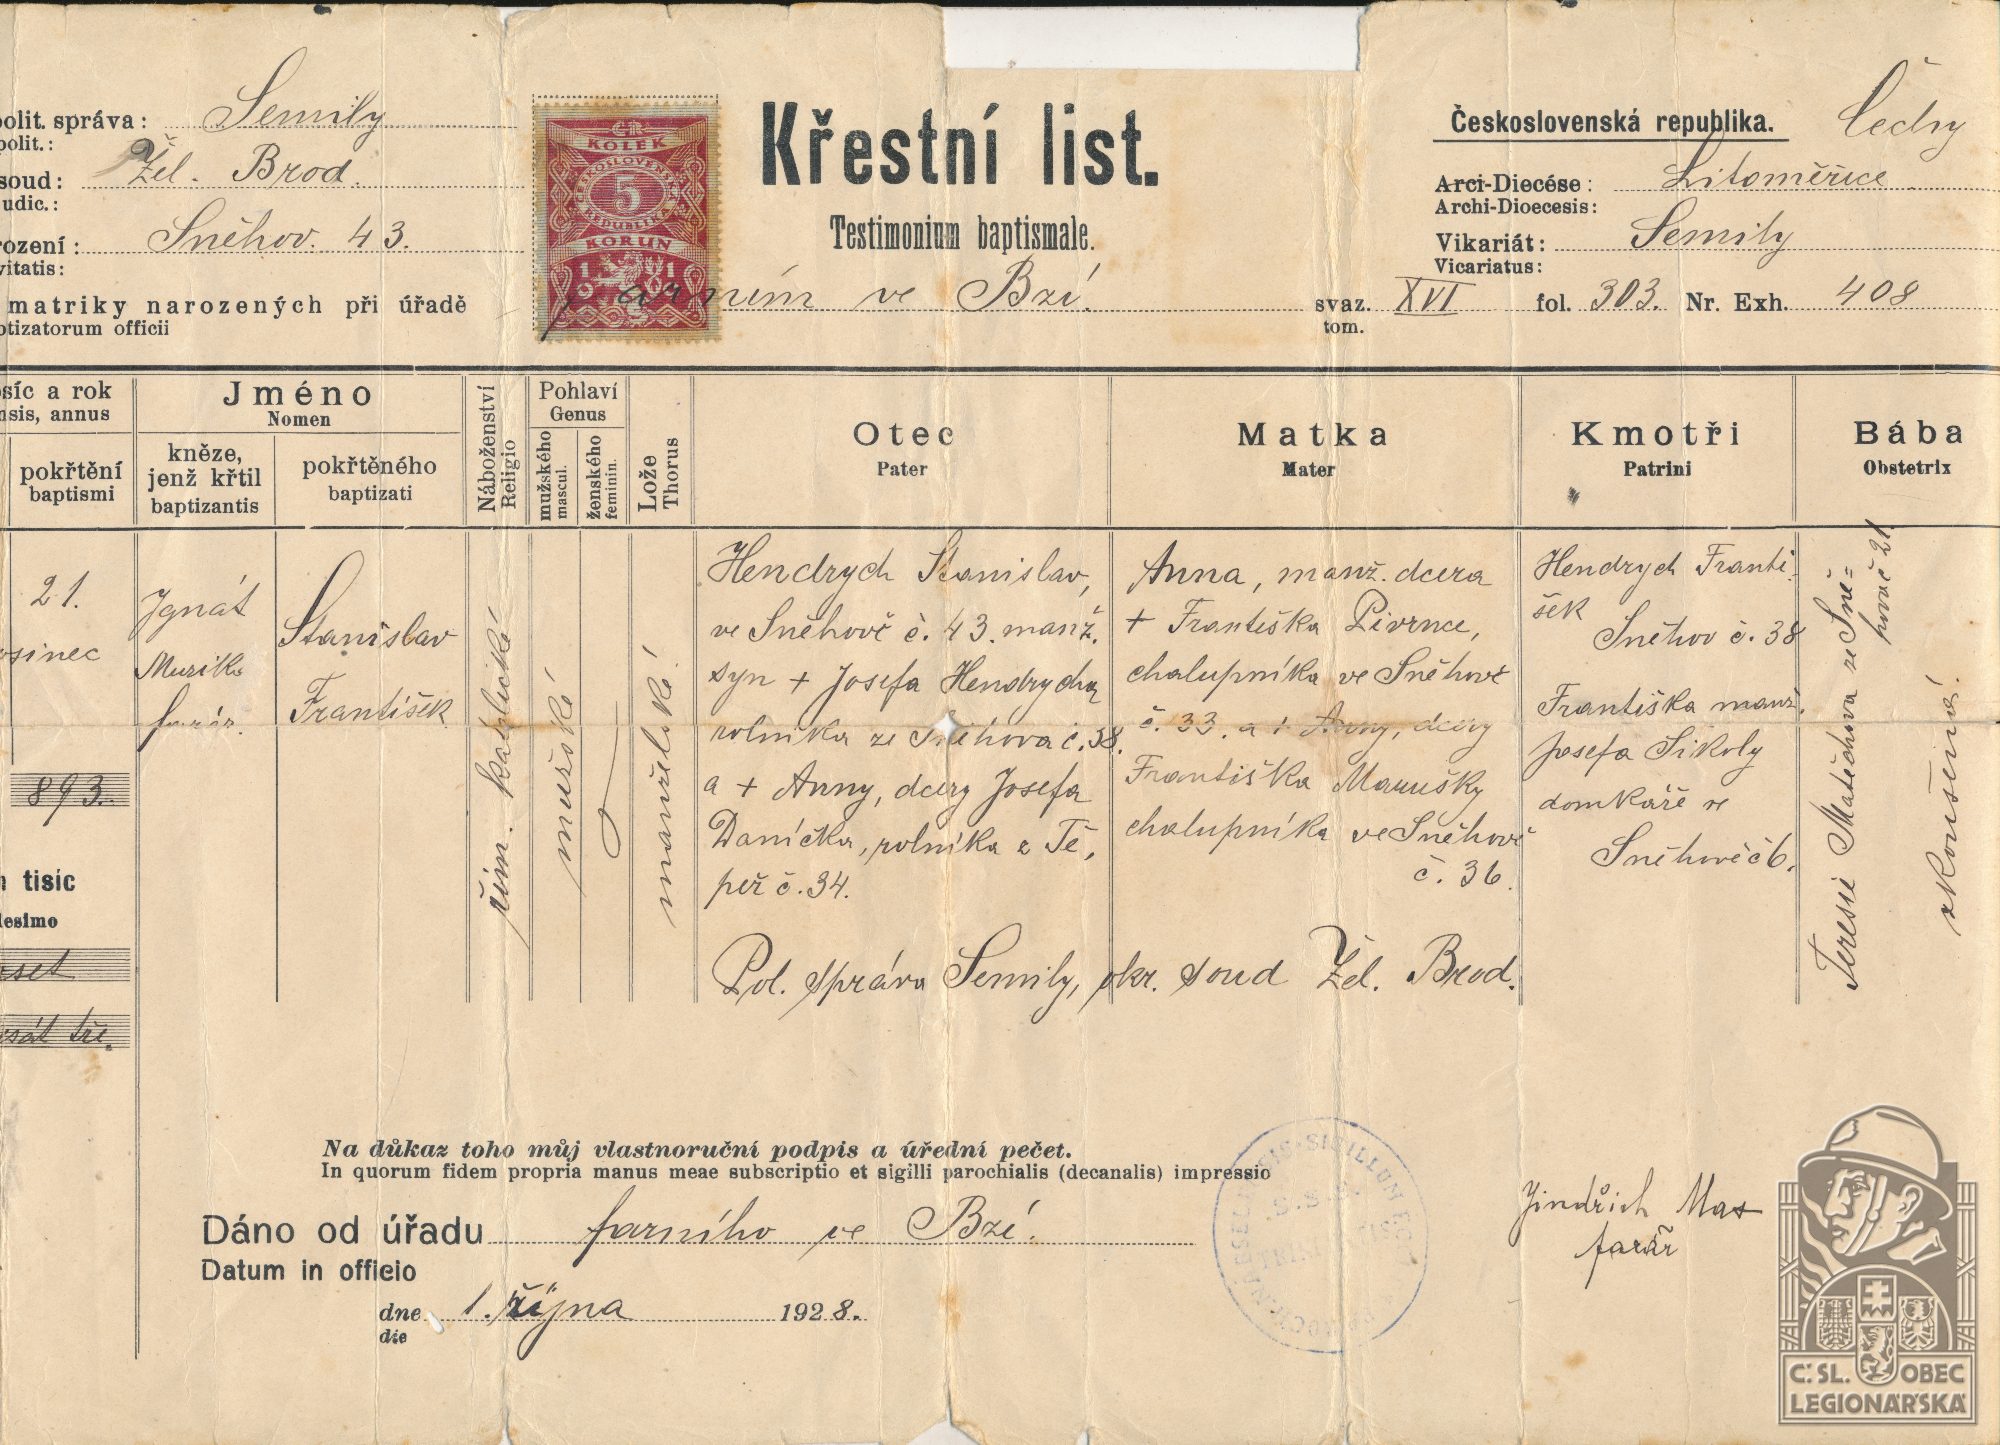 polit. správa: Semily
polit.:
soud: Žel. Brod.
judic.:
rození: Sněhov. 43.
vitatis:
matriky narozených při úřadě farním ve Bzí.
ptizatorum officii
KOLEK
ČESKOSLOVENSKÁ
5
REPUBLIKA
KORUN
1919
Křestní list.
Testimonium baptismale.
Československá republika. Čechy
Arci-Diecése: Litoměřice
Archi-Dioecesis:
Vikariát: Semily
Vicariatus:
svaz. XVI fol. 303. Nr. Exh. 408
tom.
síc a rok
nsis, annus
pokřtění
baptismi
Jméno
Nomen
kněze,
jenž křtil
baptizantis
pokřtěného
baptizati
Náboženství
Religio
Pohlaví
Genus
mužského
mascul.
ženského
feminin.
Lože
Thorus
Otec
Pater
Matka
Mater
Kmotři
Patrini
Bába
Obstetrix
21.
osinec
893.
tisíc
lesimo
set
sát tři.
Ignát
Muzika
farář.
Stanislav
František
řím. katolické
mužské
manželské.
Hendrych Stanislav,
ve Sněhově č. 43. manž.
syn + Josefa Hendrycha
rolníka ze Sněhova č. 38.
a + Anny, dcery Josefa
Daníčka, rolníka z Tě,
peř č. 34.
Anna, manž. dcera
+ Františka Pivrnce,
chalupníka ve Sněhově
č. 33. a + Anny, dcery
Františka Marušky
chalupníka ve Sněhově
č. 36.
Hendrych Franti-
šek
Sněhov č. 38
Františka manž.
Josefa Sikoly
domkáře ve
Sněhově č 6.
Teresie Matěchova ze Sně=
hova č 21.
zkoušená.
Pol. správa Semily, okr. soud Žel. Brod.
Na důkaz toho můj vlastnoruční podpis a úřední pečet.
In quorum fidem propria manus meae subscriptio et sigilli parochialis (decanalis) impressio
Dáno od úřadu farního ve Bzí.
Datum in officio
dne 1. října 1928.
die
SIGILLUM
Jindřich Max
farář
Č.SL. OBEC
LEGIONÁŘSKÁ